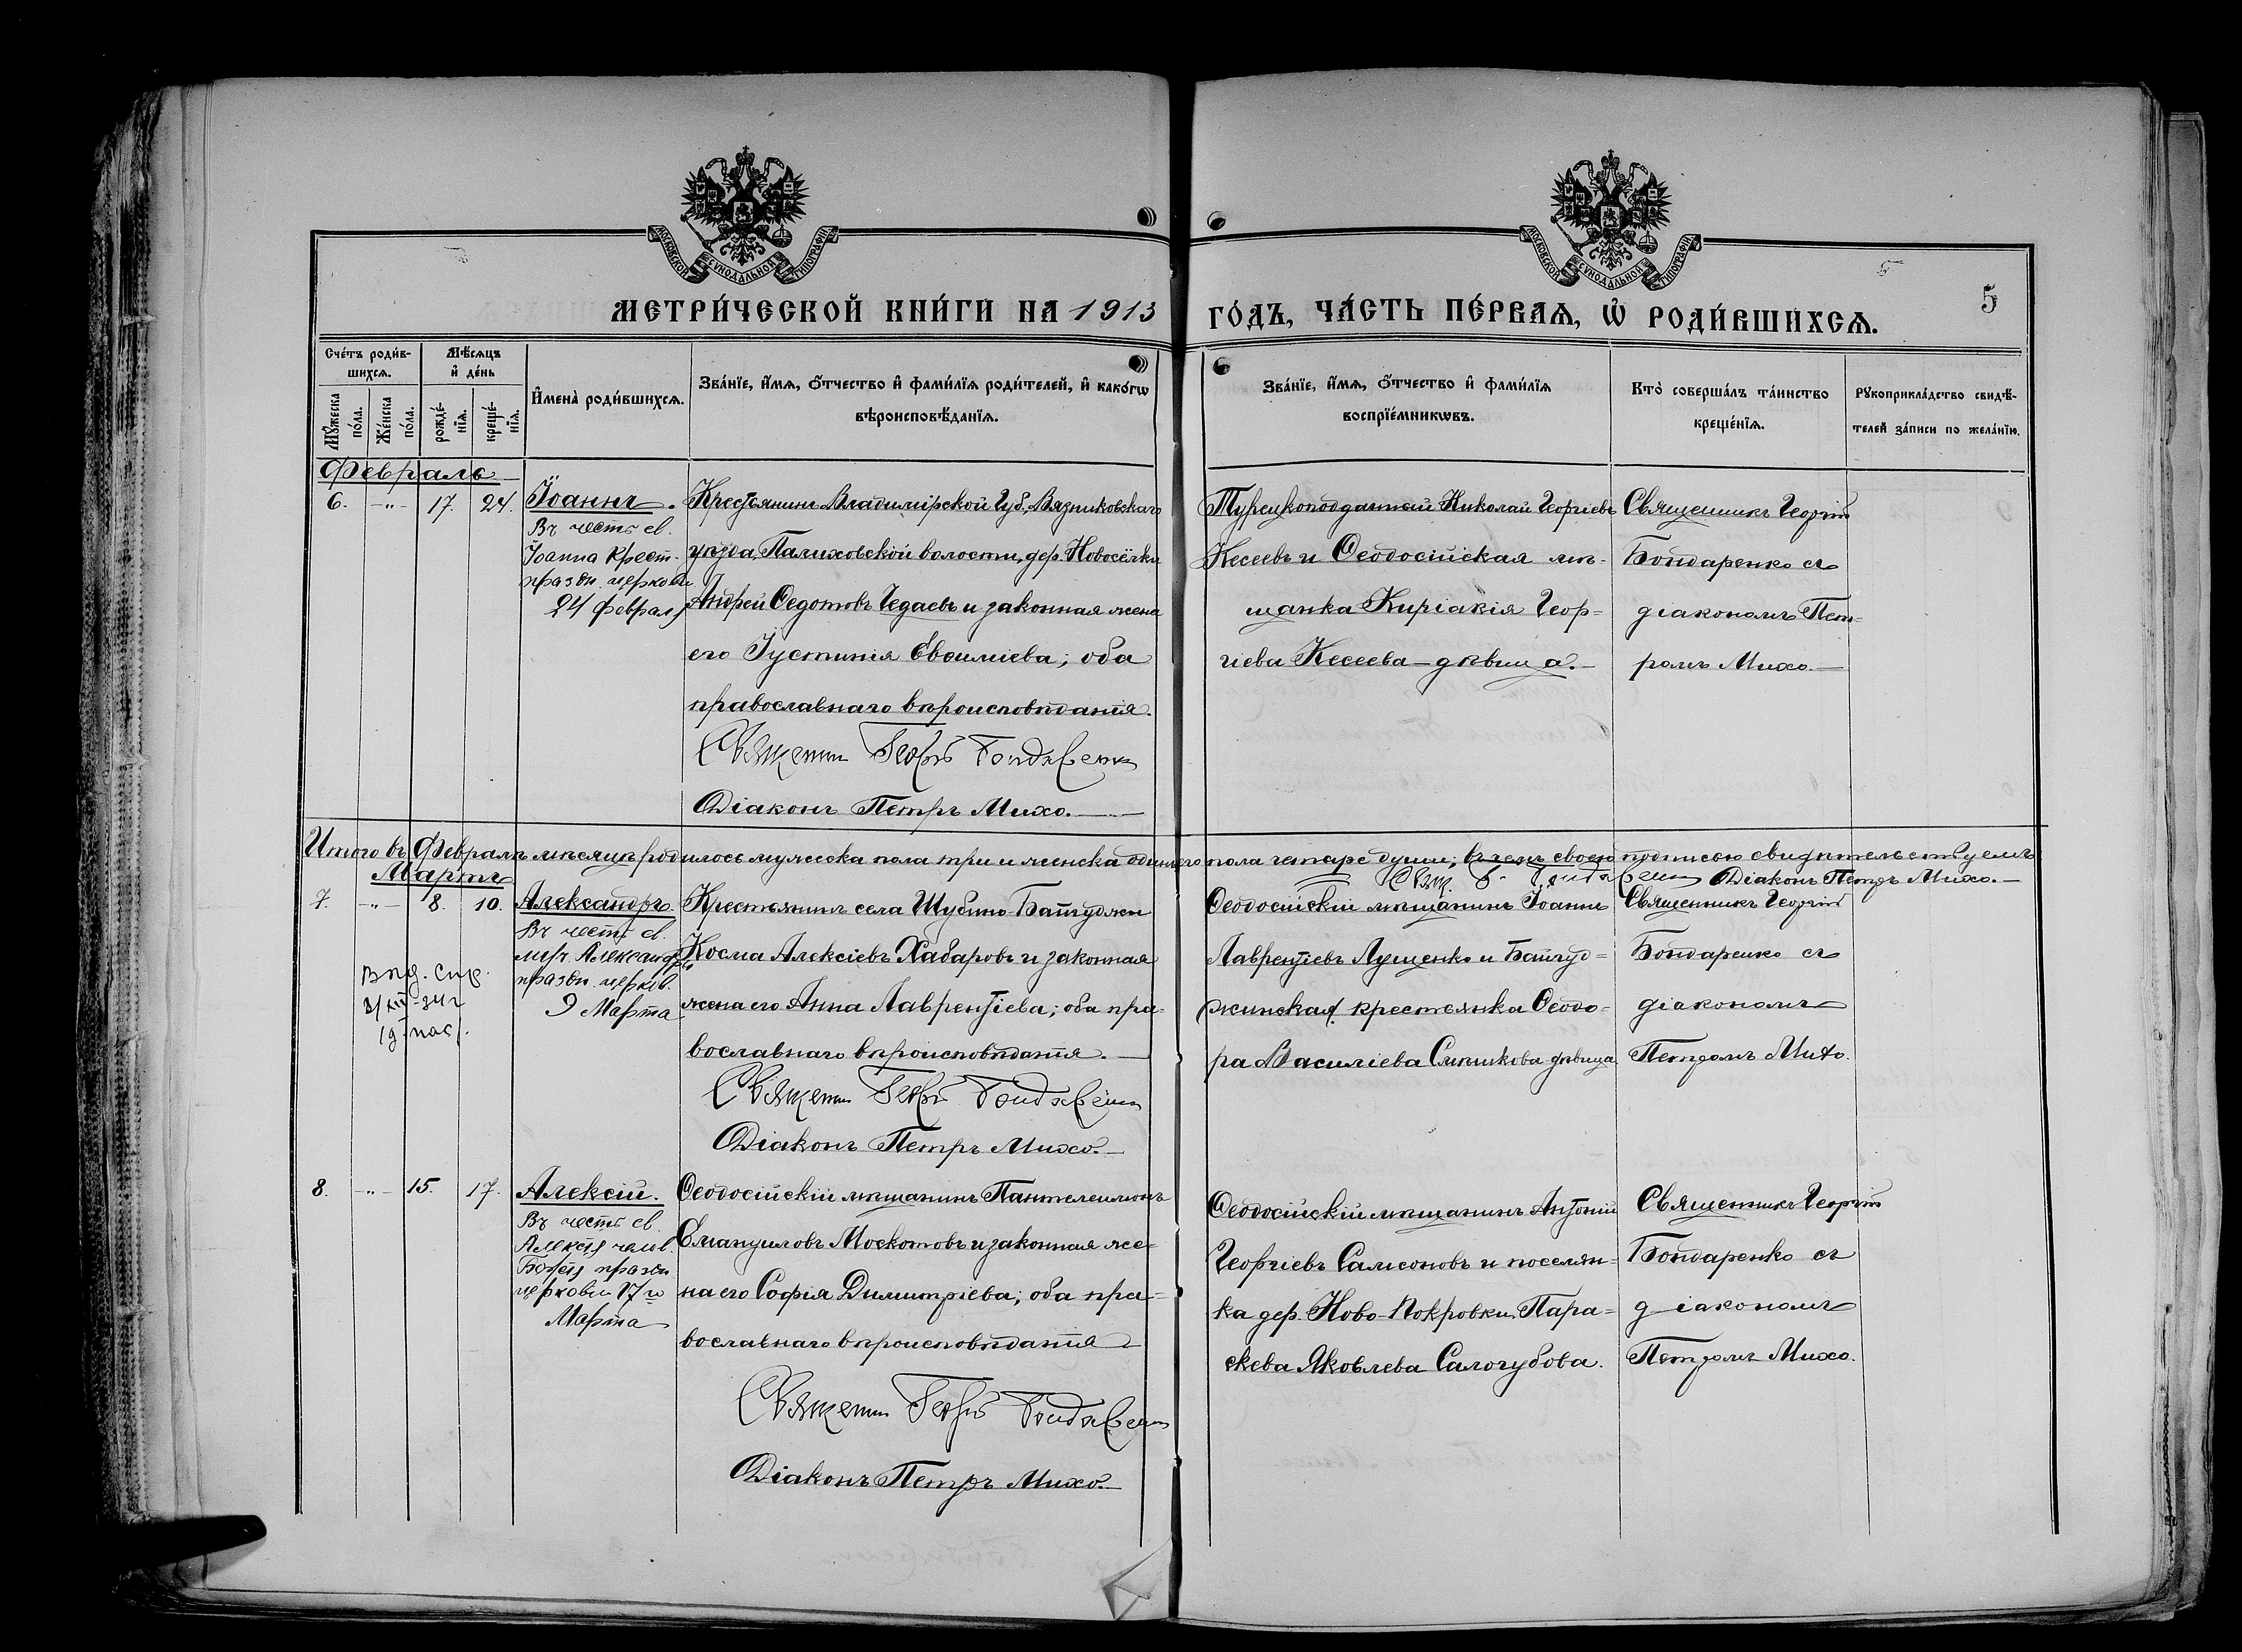 МОСКОВСКОЙ СѴНОДАЛЬНОЙ ТИПОГРАФІИ
МОСКОВСКОЙ СѴНОДАЛЬНОЙ ТИПОГРАФІИ
МЕТРИ́ЧЕСКОЙ КНИ́ГИ НА 1913 ГО́ДЪ, ЧА́СТЬ ПЕ́РВАѦ, Ѡ҆ РОДИ́ВШИХСѦ.
5
Сче́тъ роди́в-
шихсѧ.
Мѣ́сѧцъ
и҆ де́нь
Мꙋ́жеска
по́ла.
Же́нска
по́ла.
рожде́-
нїѧ.
креще́-
нїѧ.
И҆мена̀ роди́вшихсѧ.
Зва́нїе, и҆́мѧ, ѻ҆́тчество и҆ фами́лїѧ роди́телей, и҆ како́гѡ
вѣроисповѣ́данїѧ.
Зва́нїе, и҆́мѧ, ѻ҆́тчество и҆ фами́лїѧ
воспрїе́мникѡвъ.
Кто̀ соверша́лъ та́инство
креще́нїѧ.
Рꙋкоприкла́дство свидѣ́-
телей за́писи по жела́нїю.
Февраль
6. -„- 17. 24. Іоаннъ.
Въ честь св.
Іоанна Крест.
праздн. церковн
24 Февраля
Крестьянинъ Владимірской Губ., Вязниковскаго
уѣзда, Палиховской волости, дер. Новосёлки
Андрей Ѳедотовъ Гедаевъ и законная жена
его Іустинія Евѳиміева; оба
православнаго вѣроисповѣданія.
Священн Георгій Бондаренко
Діаконъ Петръ Михо.
Турецкоподданный Николай Георгіевъ
Кесеевъ и Ѳеодосійская мѣ-
щанка Киріакія Геор=
гіева Кесеева - дѣвица.
Священникъ Георгій
Бондаренко съ
діакономъ Пет=
ромъ Михо.
Итого въ Февралѣ мѣсяцѣ родилось мужеска пола три и женска одна его пола четыре души; въ чемъ своею подписью свидѣтельствуемъ
Свящ. Г. Бондаренко Діаконъ Петръ Михо.
Мартъ
7. -„- 8. 10. Александръ.
Въ честь св.
муч. Александра
праздн. церков.
9 Марта
Выд. спр.
Крестьянинъ села Шубино-Байгуджи
Косма Алексіевъ Хабаровъ и законная
жена его Анна Лаврентіева; оба пра-
вославнаго вѣроисповѣданія.
Священн Георгій Бондаренко
Діаконъ Петръ Михо.
Ѳеодосійскій мѣщанинъ Іоаннъ
Лаврентіевъ Лущенко и Байгуд=
жинская крестьянка Ѳеодо-
ра Василіева Сыпникова дѣвица
Священникъ Георгій
Бондаренко съ
діакономъ
Петромъ Михо.
8. -„- 15. 17. Алексій.
Въ честь св.
Алексія челов.
Божія праздн
церковн 17 го
Марта
Ѳеодосійскій мѣщанинъ Пантелеимонъ
Емануиловъ Москотовъ и законная же-
на его Софія Димитріева; оба пра=
вославнаго вѣроисповѣданія
Священн Георгій Бондаренко
Діаконъ Петръ Михо.
Ѳеодосійскій мѣщанинъ Антоній
Георгіевъ Самсоновъ и поселян=
ка дер. Ново-Покровки Пара=
скева Яковлева Салогубова.
Священникъ Георгій
Бондаренко съ
діакономъ
Петромъ Михо.